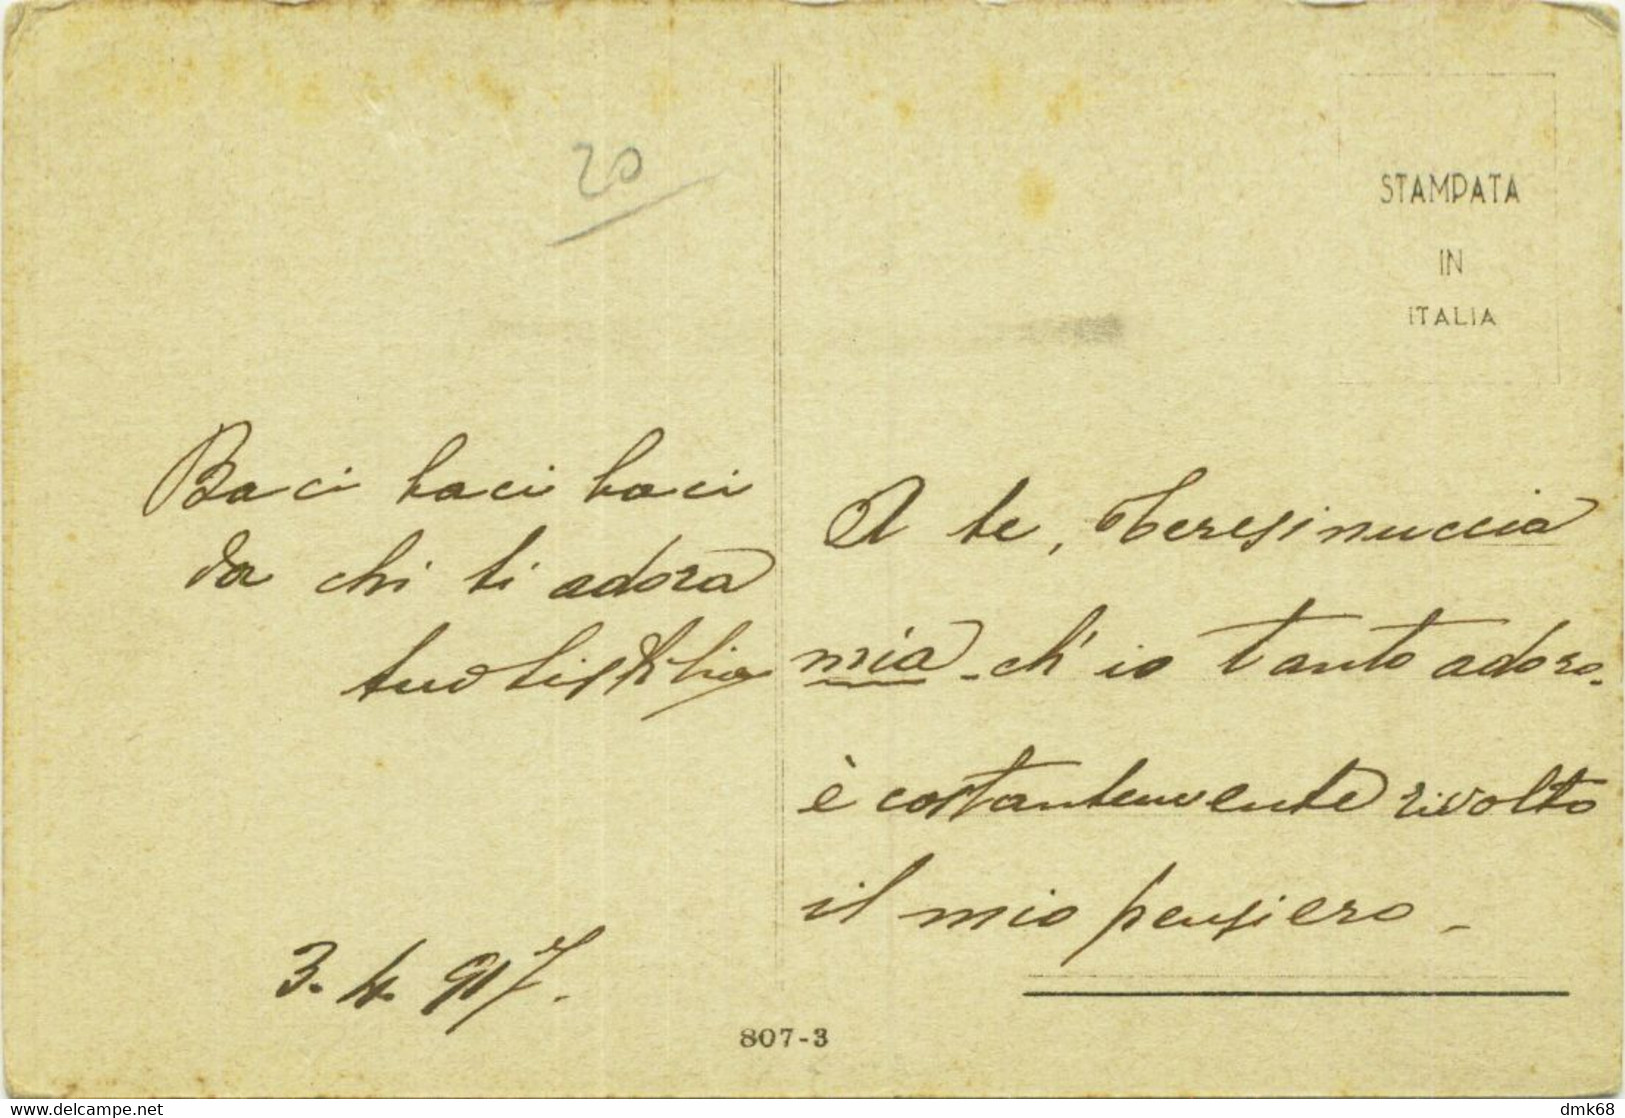 20
STAMPATA
IN
ITALIA
Baci baci baci
da chi ti adora
tuo
3. 4. 917.
A te, Teresinuccia
mia - ch'io tanto adoro -
è costantemente rivolto
il mio pensiero -
807-3
delcampe.net
dmk68